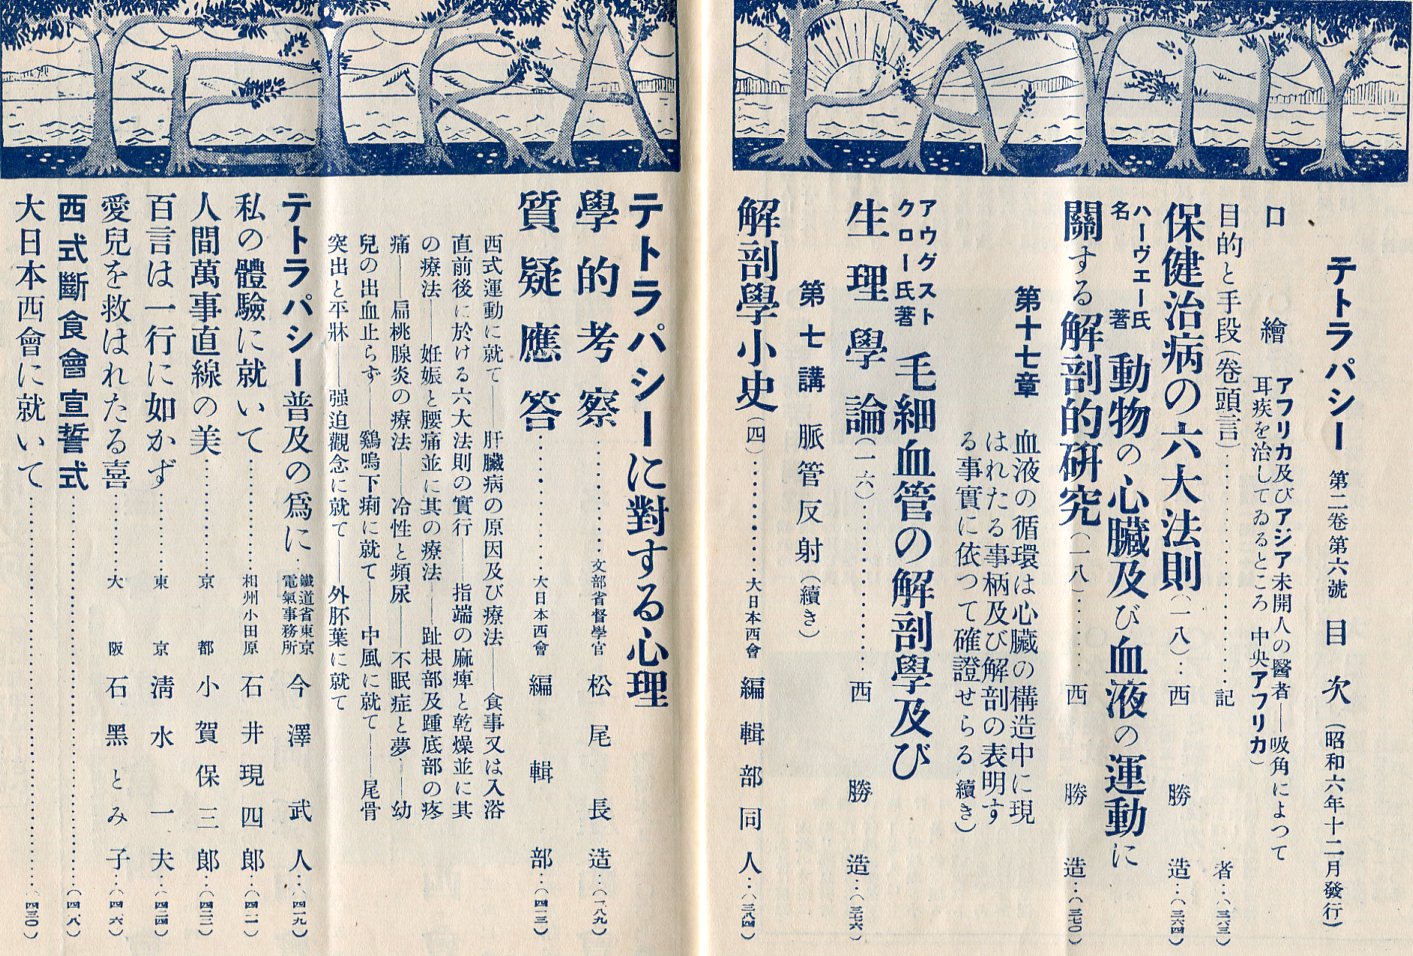 TETRA
PATHY
テトラパシー 第二卷第六號 目次(昭和六年十二月發行)
口繪 アフリカ及びアジア未開人の醫者―吸角によつて
耳疾を治してゐるところ 中央アフリカ)
目的と手段(卷頭言)…………記者…(三六三)
保健治病の六大法則(一八)…西勝造…(三六四)
ハーヴェー氏名著 動物の心臟及び血液の運動に
關する解剖的硏究(一八)……西勝造…(三七〇)
第十七章 血液の循環は心臟の構造中に現
はれたる事柄及び解剖の表明す
る事實に依つて確證せらる(續き)
アウグスト クロー氏著 毛細血管の解剖學及び
生理學論(一六)…………西勝造…(三七六)
第七講 脈管反射(續き)
解剖學小史(四)…………大日本西會 編輯部同人…(三八四)
テトラパシーに對する心理
學的考察…………文部省督學官 松尾長造…(三八九)
質疑應答…………大日本西會 編輯部…(四一三)
西式運動に就て――肝臟病の原因及び療法――食事又は入浴
直前後に於ける六大法則の實行――指端の麻痺と乾燥並に其
の療法――妊娠と腰痛並に其の療法――趾根部及踵底部の疼
痛――扁桃腺炎の療法――冷性と頻尿――不眠症と夢――幼
兒の出血止らず――鷄鳴下痢に就て――中風に就て――尾骨
突出と平牀――强迫觀念に就て――外胚葉に就て
テトラパシー普及の爲に…鐵道省東京電氣事務所 今澤武人…(四一九)
私の體驗に就いて…………相州小田原 石井現四郎…(四二一)
人間萬事直線の美…………京都 小賀保三郎…(四二二)
百言は一行に如かず…………東京 淸水一夫…(四二四)
愛兒を救はれたる喜…………大阪 石黑とみ子…(四二六)
西式斷食會宣誓式…………(四二八)
大日本西會に就いて…………(四三〇)